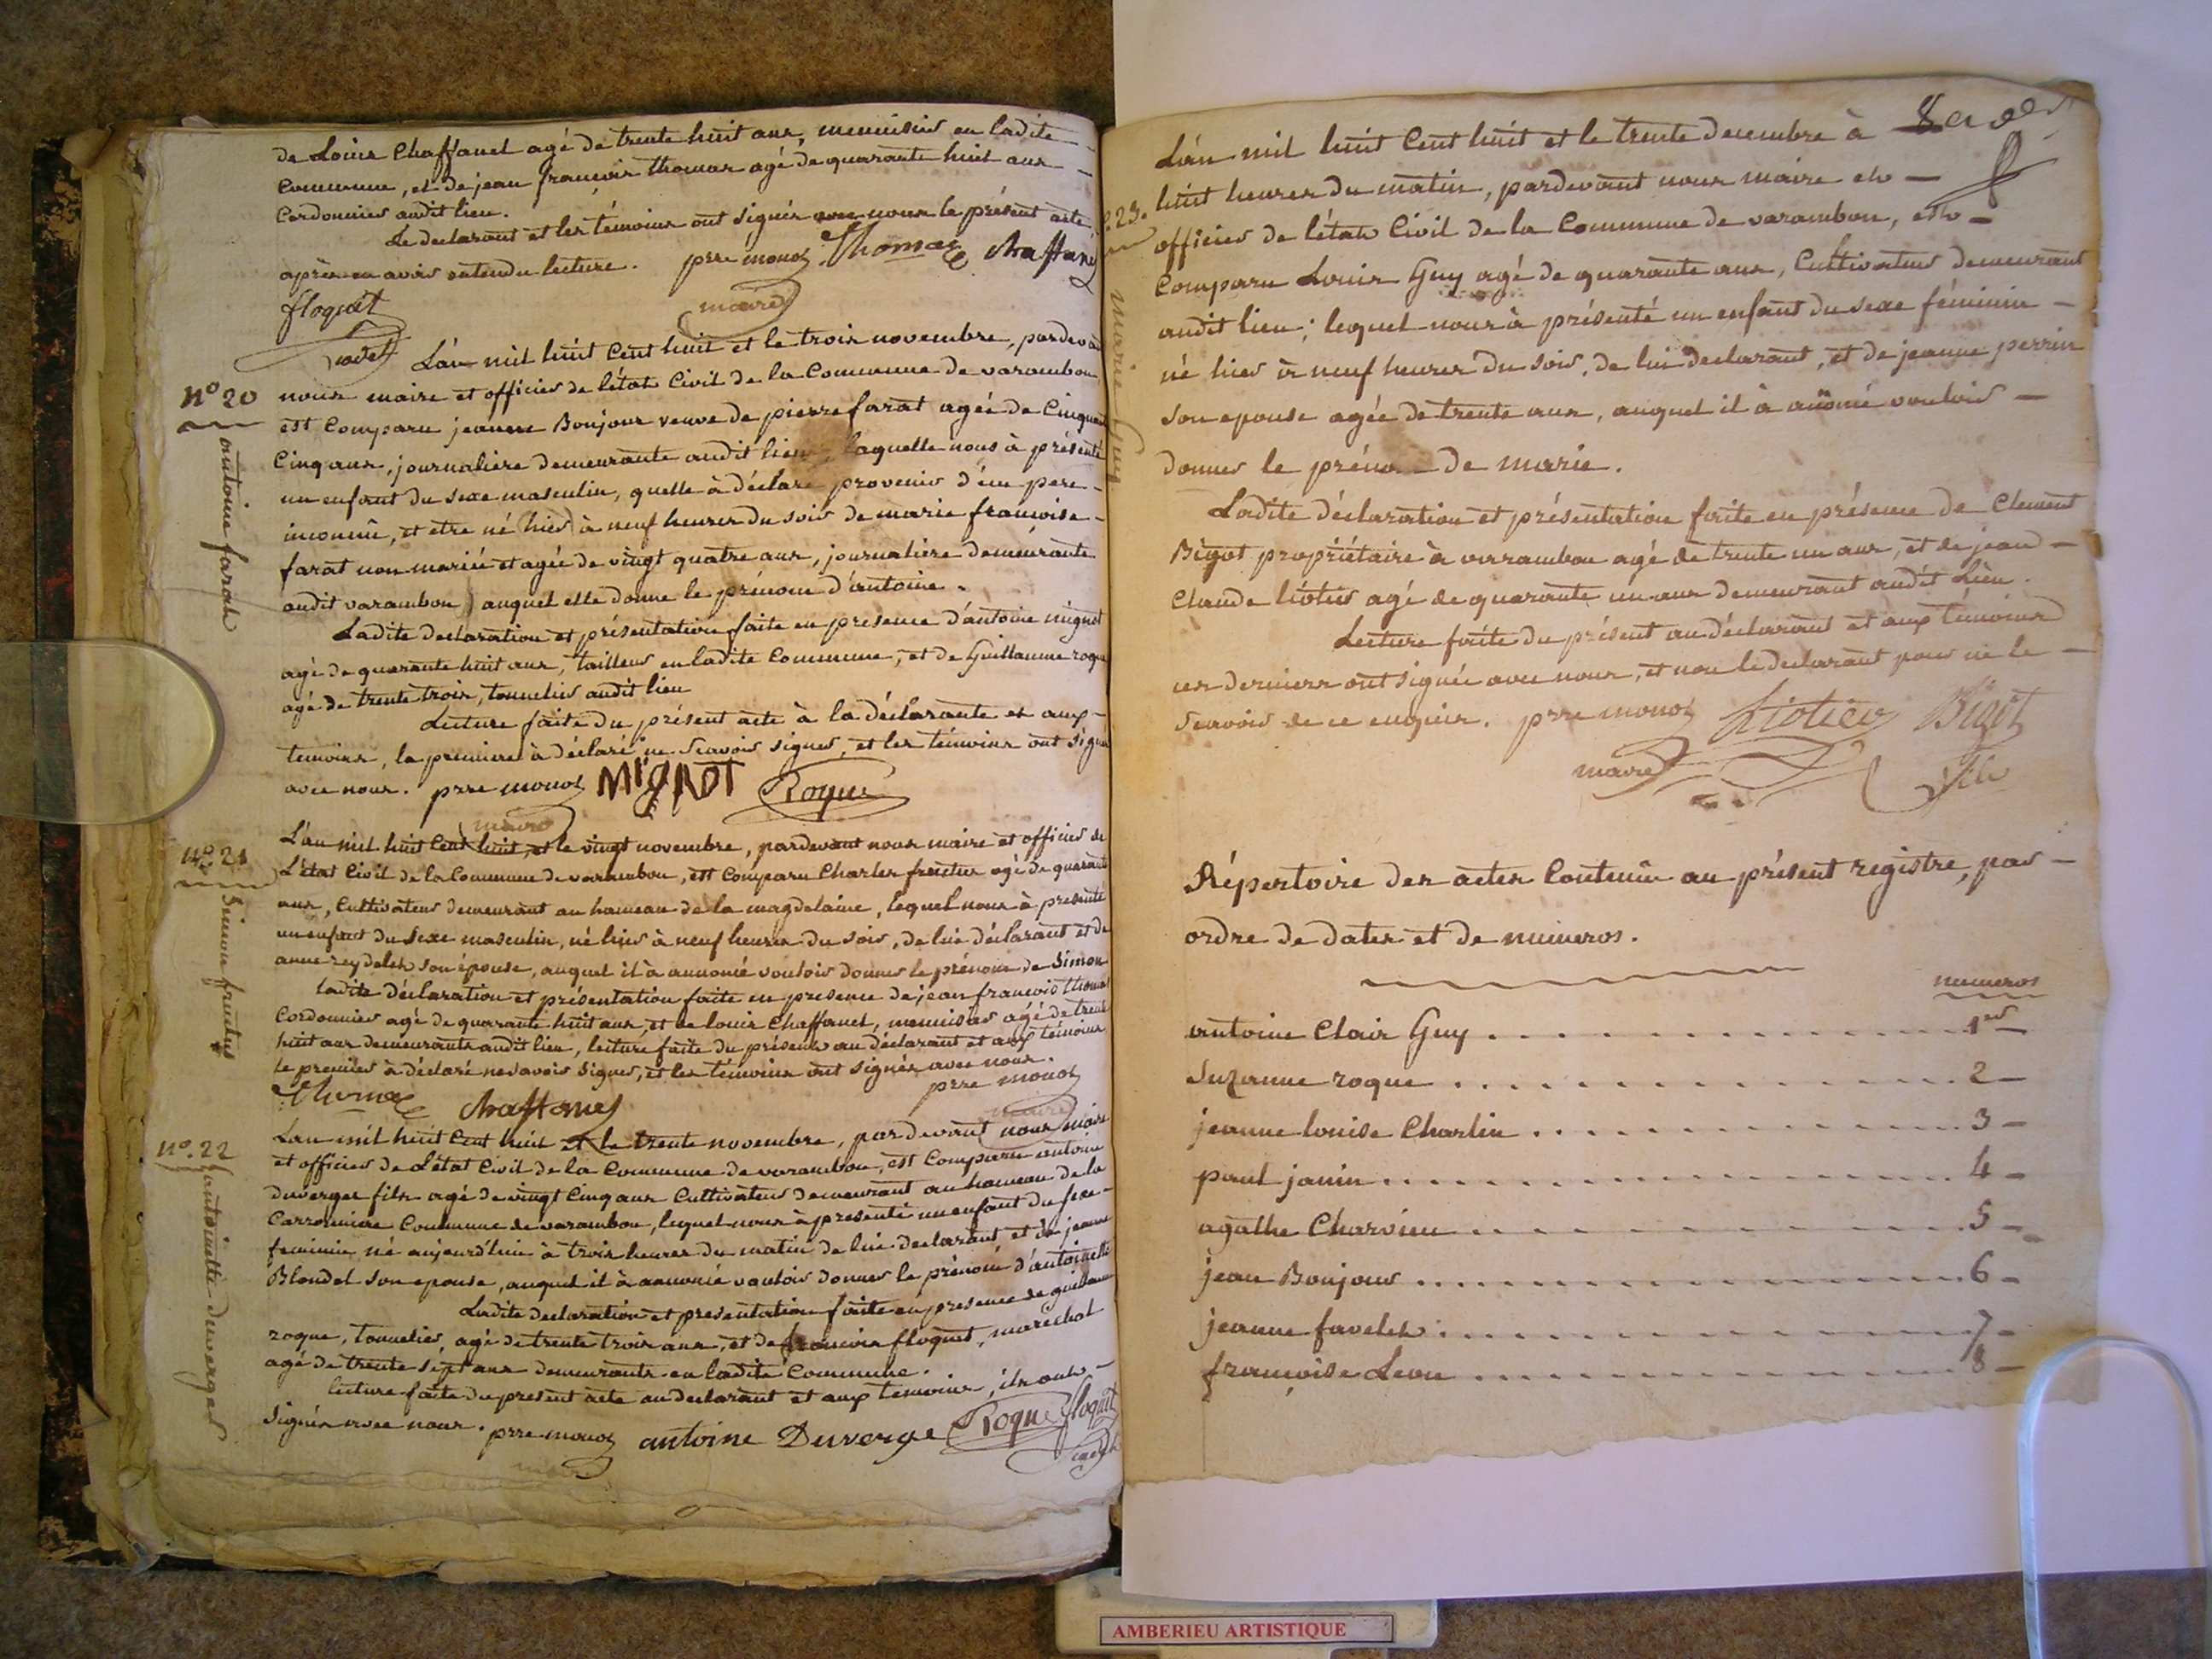 de Louis Chaffanel agé de trente huit ans, menuisier en ladite
Commune, et de jean françois thomas agé de quarante huit ans
Cordonnier audit lieu.
Le declarant et les témoins ont signés avec nous le présent acte,
après en avoir entendu lecture. prre monoz Thomas Chaffanel
floquet maire
cadet
L'an mil huit Cent huit et le trois novembre, pardevant
N° 20
nous maire et officier de l'état Civil de la Commune de varambon
est Comparu jeanne Bonjour veuve de pierre farat agée de Cinquante
Cinq ans, journaliere demeurante audit lieu, laquelle nous à présenté
un enfant du sexe masculin, quelle à déclaré provenir d'un pere
inconnu, et etre né hier à neuf heures du soir de marie francoise
farat non mariée et agée de vingt quatre ans, journaliere demeurante
audit varambon, auquel elle donne le prénom d'antoine.
antoine farat
Ladite declaration et présentation faite en présence d'antoine mignot
agé de quarante huit ans, tailleur en ladite Commune, et de Guillaume roque
agé de trente trois, tonnelier audit lieu
Lecture faite du présent acte à la déclarante et aux
temoins, la premiere à déclaré ne scavoir signer, et les témoins ont signé
avec nous. prre monoz MIGNOT Roque
maire
N° 21
L'an mil huit Cent huit, et le vingt novembre, pardevant nous maire et officier de
L'état Civil de la Commune de varambon, est Comparu Charles fructus agé de quarante
ans, Cultivateur demeurant au hameau de la magdelaine, lequel nous à présenté
un enfant du sexe masculin, né hier à neuf heures du soir, de lui déclarant et de
anne reydelet son épouse, auquel il à annoncé vouloir donner le prénom de Simon
Simon fructus
ladite déclaration et présentation faite en presence de jean francois thomas
Cordonnier agé de quarante huit ans, et de louis Chaffanel, menuisier agé de trente
huit ans demeurants audit lieu, lecture faite du présent au déclarant et aux témoins
le premier à déclaré ne savoir signer, et les témoins ont signés avec nous.
Thomas Chaffanel prre monoz
maire
N° 22
L'an mil huit Cent huit et le trente novembre, pardevant nous maire
et officier de L'état Civil de la Commune de varambon, est Comparu antoine
duverger fils agé de vingt Cinq ans Cultivateur demeurant au hameau de la
Carronniere Commune de varambon, lequel nous à présenté un enfant du sexe
feminin né aujourd'hui à trois heures du matin de lui declarant et de jeanne
Blondel son epouse, auquel il à annoncé vouloir donner le prénom d'antoinette
antoinette duverger
Ladite declaration et présentation faite en presence de guillaume
roque, tonnelier, agé de trente trois ans, et de francois floquet, marechal
agé de trente sept ans demeurants en ladite Commune.
lecture faite du present acte au declarant et aux temoins, ils ont
signés avec nous. prre monoz antoine Duverge Roque floquet
maire cadet
L'an mil huit Cent huit et le trente decembre à
huit heures du matin, pardevant nous maire et
23.
officier de l'état Civil de la Commune de varambon, est
Comparu Louis Guy agé de quarante ans, Cultivateur demeurant
audit lieu; lequel nous à présenté un enfant du sexe féminin
né hier à neuf heures du soir, de lui declarant, et de jeanne perrin
son epouse agée de trente ans, auquel il à annoncé vouloir
donner le prénom de marie.
marie Guy
Ladite déclaration et présentation faite en présence de Clement
Bigot propriétaire à varambon agé de trente un ans, et de jean
Claude liotier agé de quarante un ans demeurant audit Lieu.
Lecture faite du présent au déclarant et aux témoins
ces derniers ont signés avec nous, et non le declarant pour ne le
scavoir de ce enquis. prre monoz Liotier Bigot
maire fils
Répertoire des actes Contenu au présent registre, par
ordre de dates et de numeros.
numeros
antoine Clair Guy . . . . . . . . . . 1er
Suzanne roque . . . . . . . . . . 2
jeanne louise Charlin . . . . . . . . . . 3
paul janin . . . . . . . . . . 4
agathe Charvieu . . . . . . . . . . 5
jean Bonjour . . . . . . . . . . 6
jeanne favelet . . . . . . . . . . 7
françoise Leon . . . . . . . . . . 8
AMBERIEU ARTISTIQUE